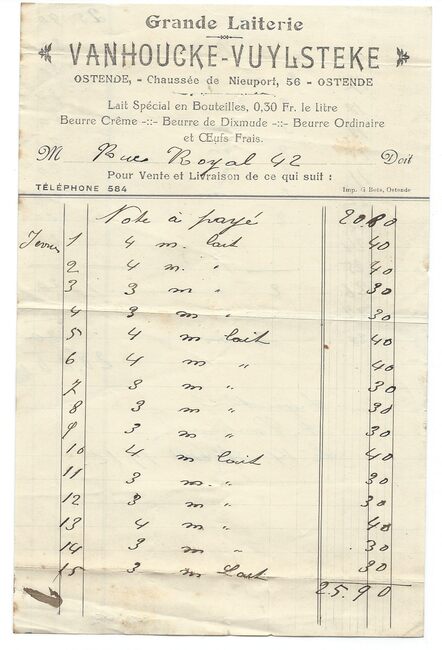 Grande Laiterie
VANHOUCKE-VUYLSTEKE
OSTENDE, - Chaussée de Nieuport, 56 - OSTENDE
Lait Spécial en Bouteilles, 0,30 Fr. le litre
Beurre Crême -::- Beurre de Dixmude -::- Beurre Ordinaire
et Œufs Frais.
M Rue Royal 42 Doit
Pour Vente et Livraison de ce qui suit :
TÉLÉPHONE 584 Imp. G Bois, Ostende
Note à payé 20.80
1 4 m. lait 40
2 4 m. " 40
3 3 m " 30
4 3 m " 30
5 4 m lait 40
6 4 m " 40
7 3 m " 30
8 3 m " 30
9 3 m " 30
10 4 m lait 40
11 3 m. " 30
12 3 m " 30
13 4 m " 40
14 3 m " 30
15 3 m Lait 30
25.90